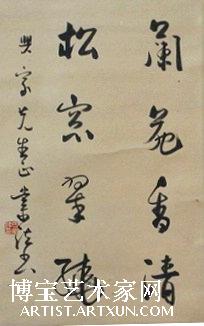 蘭苑香清
松窗翠
興宗先生正
博宝艺术家网
ARTIST.ARTXUN.COM